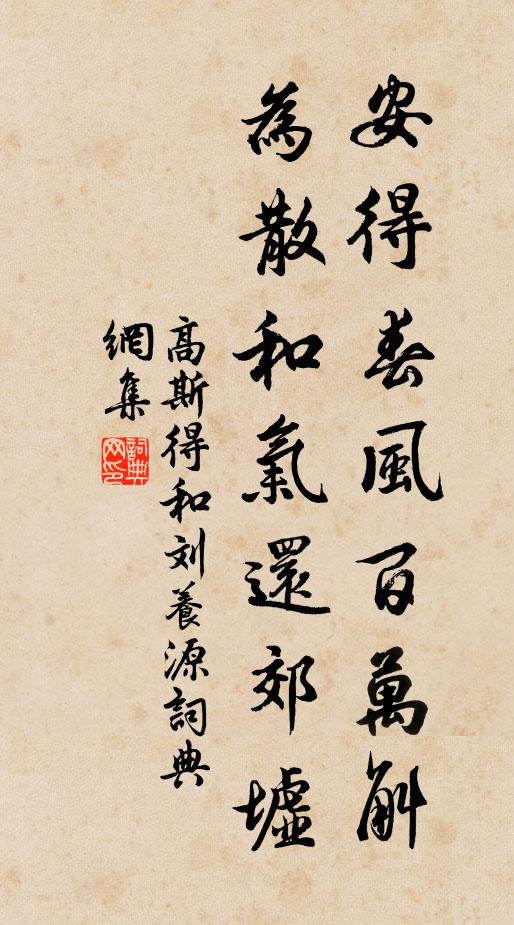 安得春風百萬斛
為散和氣還郊墟
高斯得和刘養源詞典
網集
詞典
网印